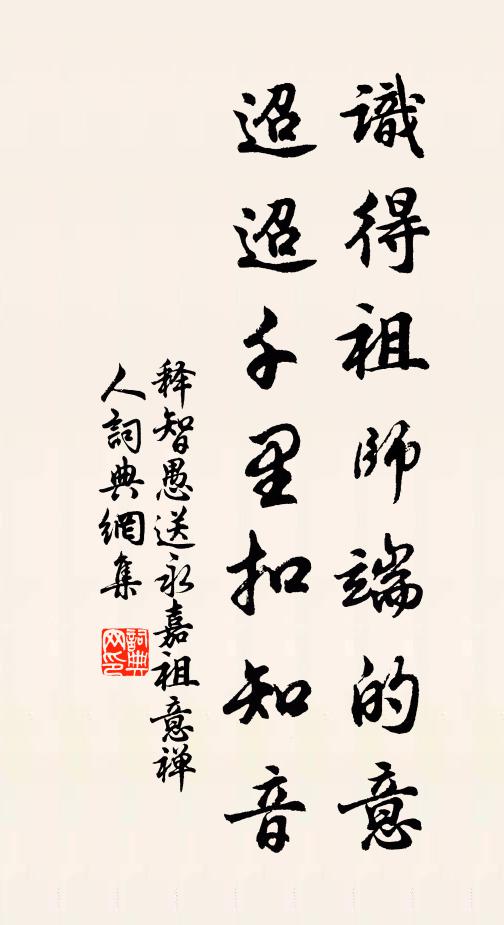 識得祖師端的意
迢迢千里扣知音
释智愚送永嘉祖意禅
人詞典網集
詞典网印